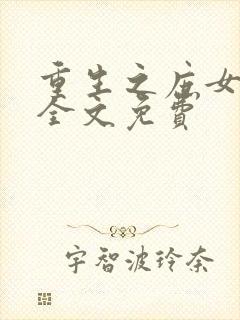 重生之庶女
全文免费
宇智波玲奈